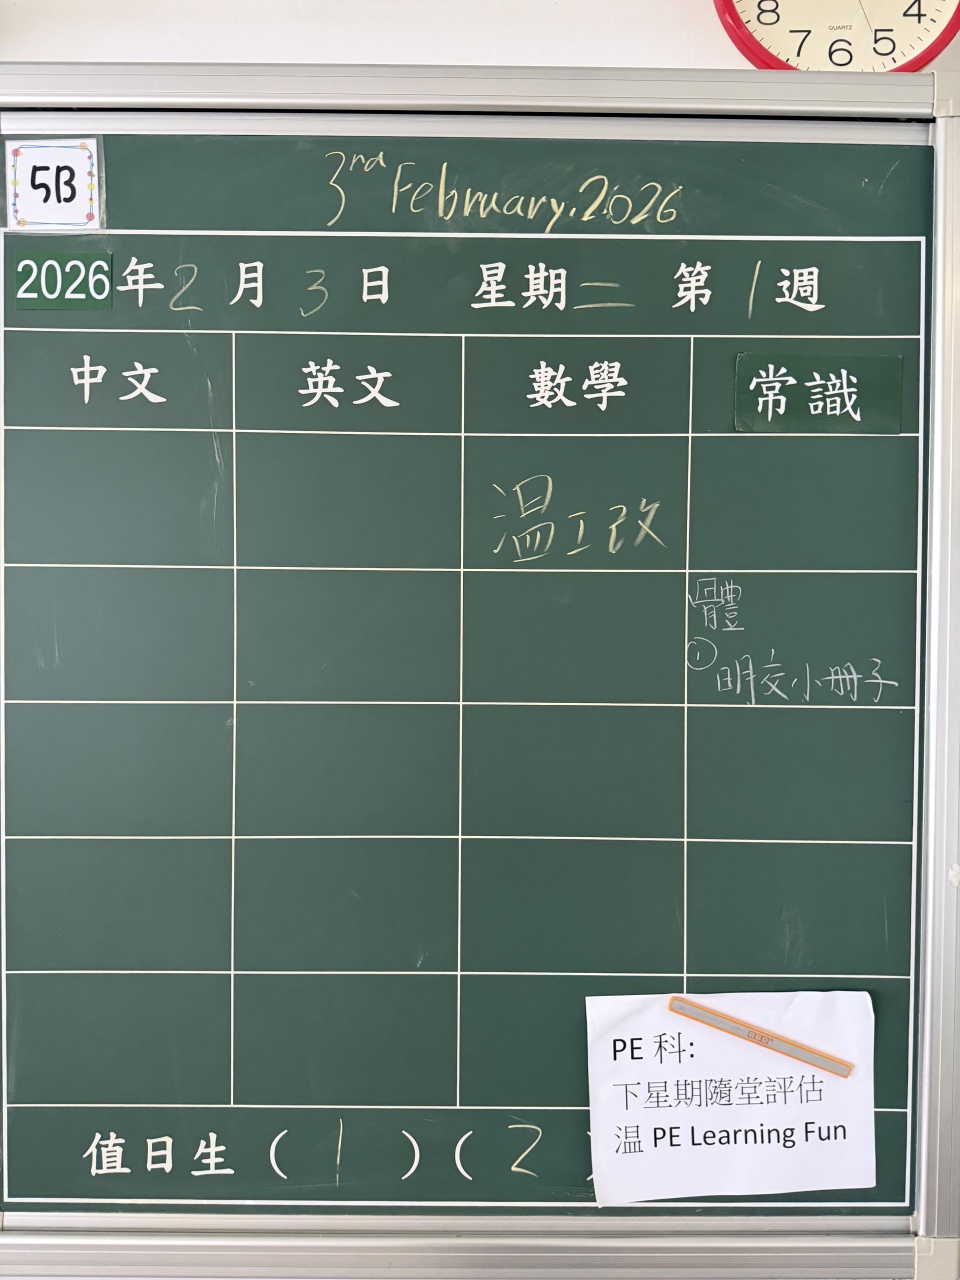 8 7 6 5 4
QUARTZ
5B
3rd February.2026
2026年2月3日 星期二 第1週
中文 英文 數學 常識
温工改
體
① 明交小冊子
PE 科:
下星期隨堂評估
温 PE Learning Fun
值日生 ( 1 ) ( 2